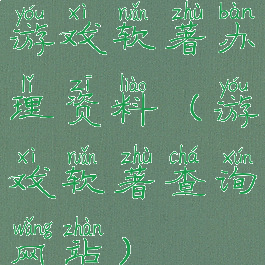 yóu xì ruǎn zhù bàn
游戏软著办
lǐ zī liào yóu
理资料（游
xì ruǎn zhù chá xún
戏软著查询
wǎng zhàn
网站）